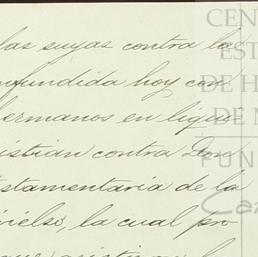 las suyas contra la
ofundida hoy con
hermanos en liqui
istian contra Don
stamentaria de la
la cual pr
CEN
EST
DE H
DE N
FUN